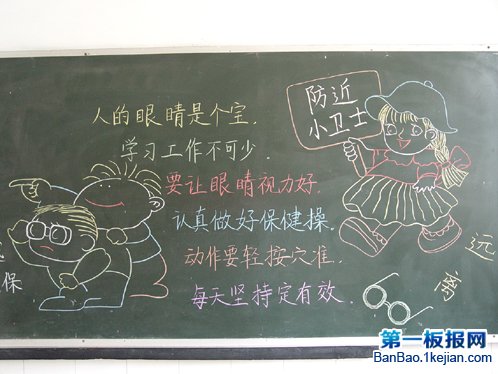 防近
小卫士
人的眼睛是个宝.
学习工作不可少.
要让眼睛视力好.
认真做好保健操.
动作要轻按穴准.
每天坚持定有效.
保
远
离
第一板报网
BanBao.1kejian.com